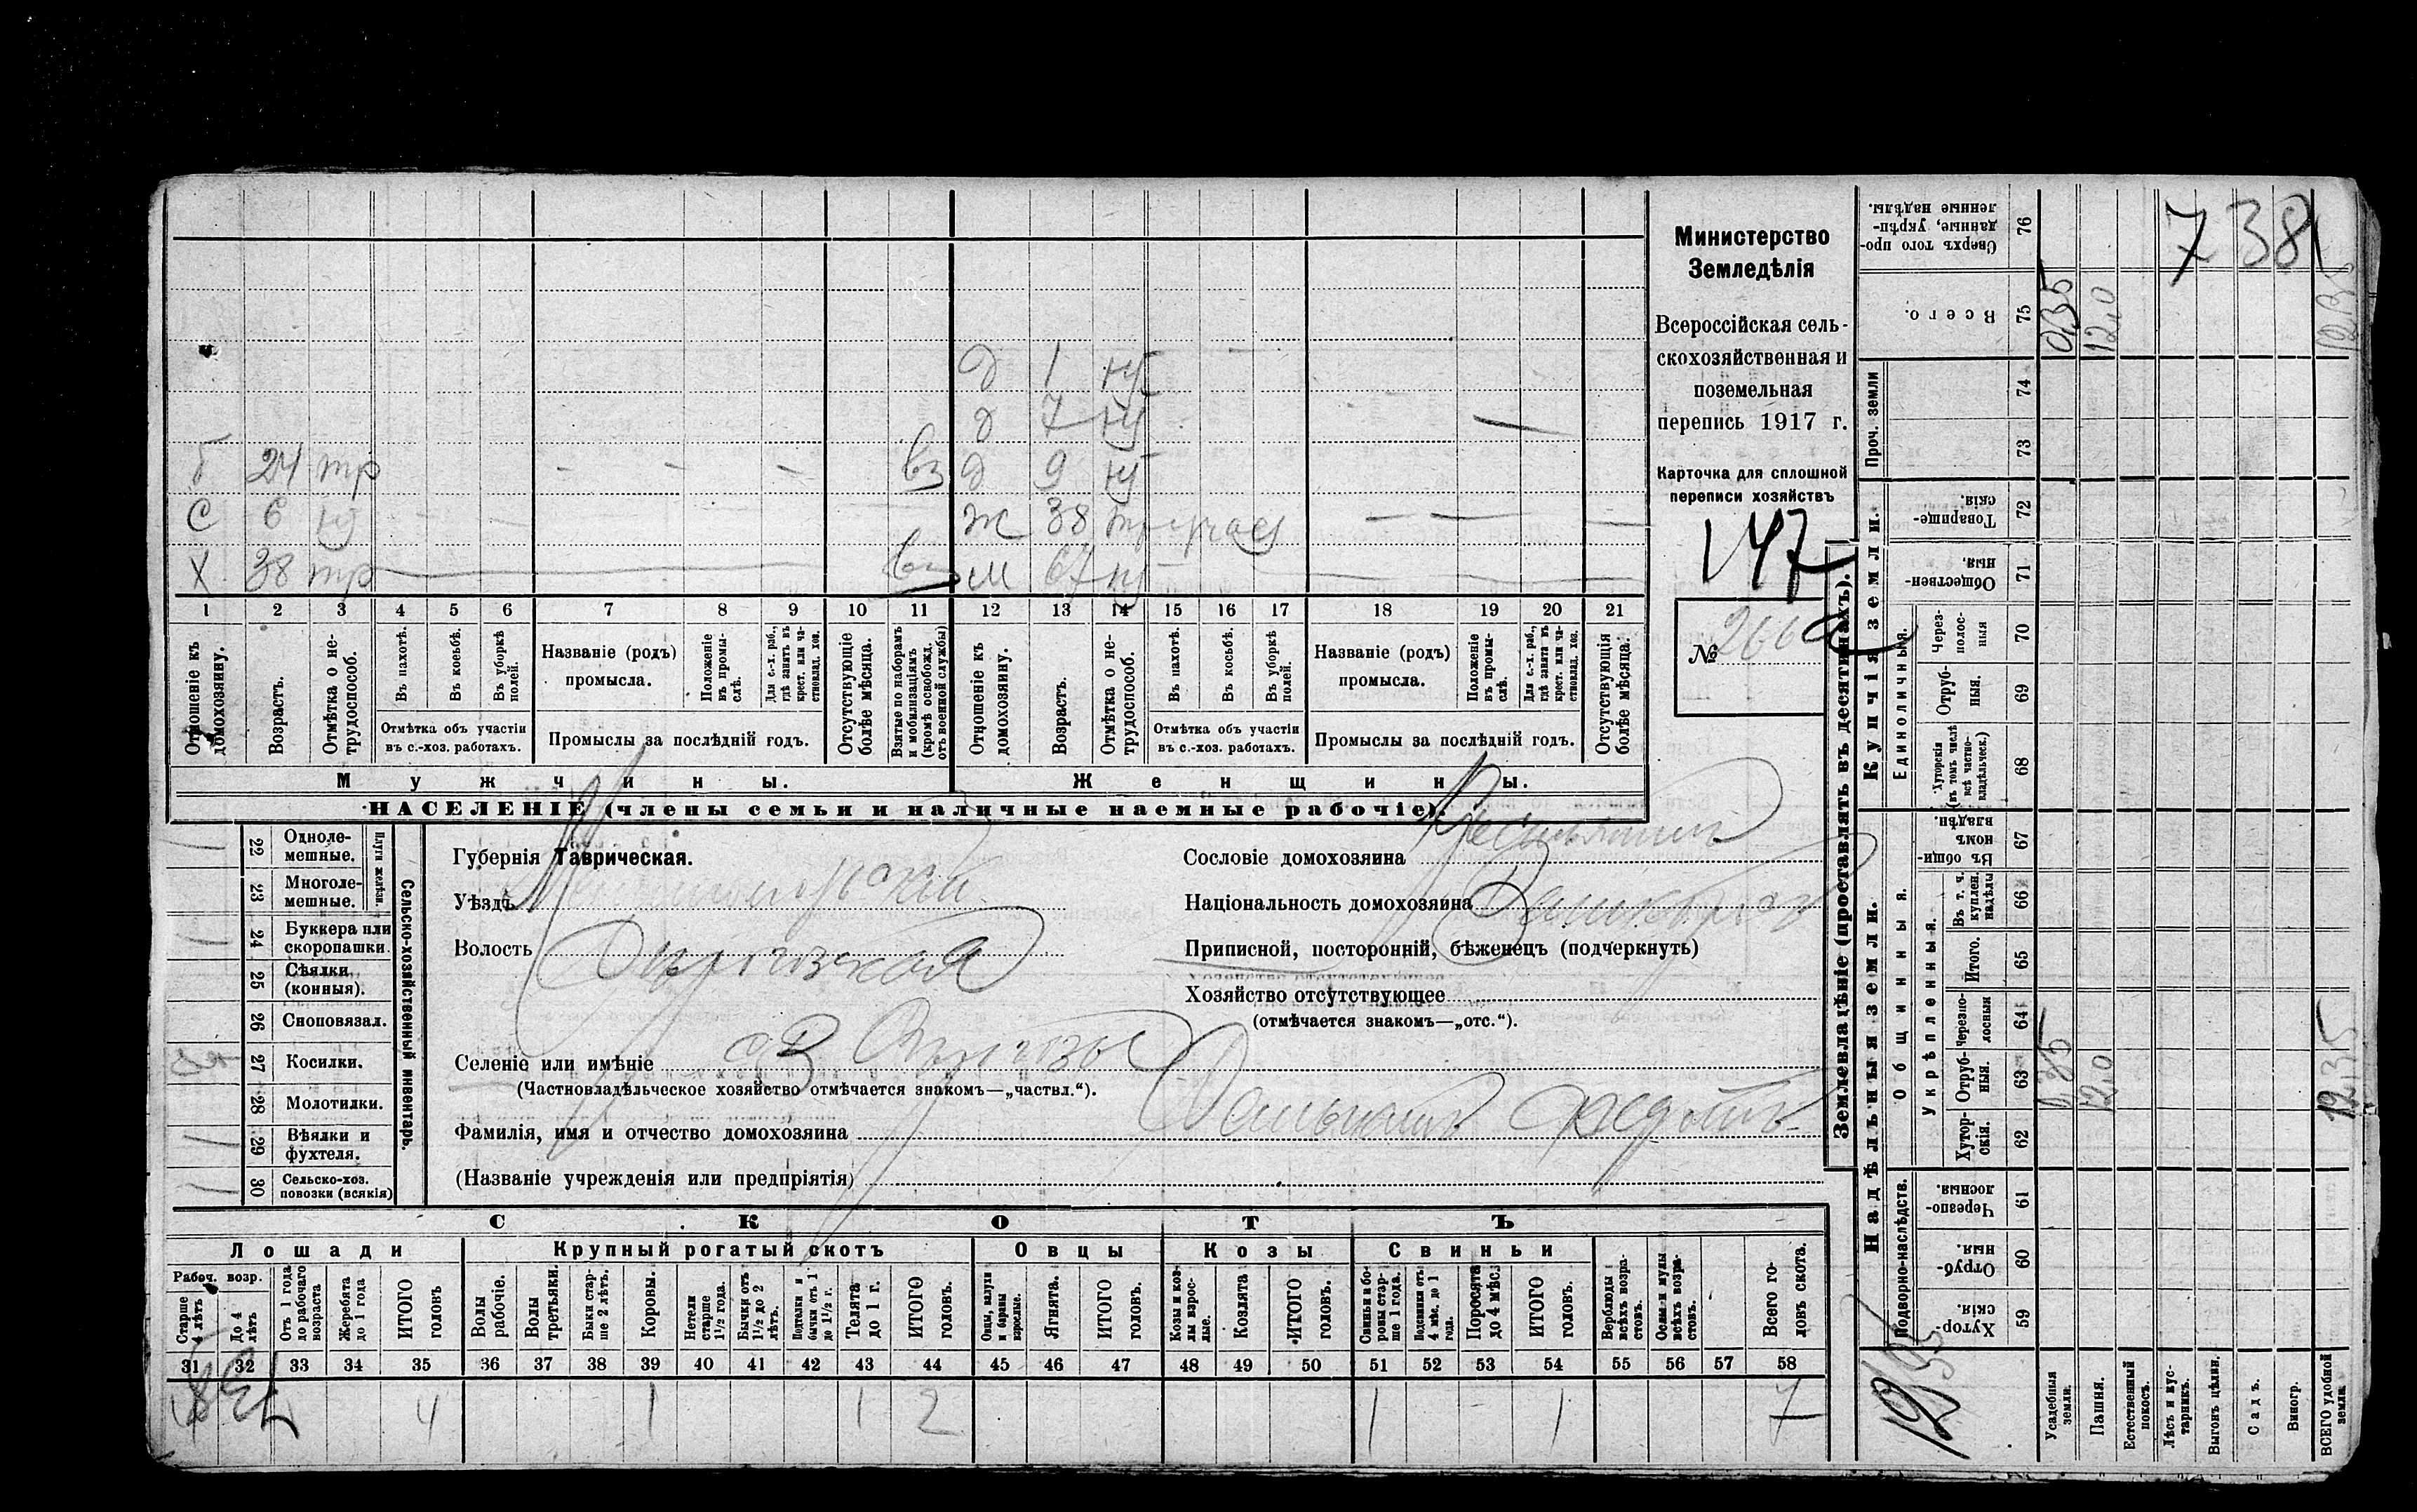 Министерство
Земледѣлія
Всероссійская сель-
скохозяйственная и
поземельная
перепись 1917 г.
Карточка для сплошной
переписи хозяйствъ
147
№
д 1 н
д 7 н
б 24 тр вз д 9 н
с 6 н ж 38 тр
х 38 тр вз м 67 н
1 2 3 4 5 6 7 8 9 10 11 12 13 14 15 16 17 18 19 20 21
Отношеніе къ домохозяину.
Возрастъ.
Отмѣтка о не-трудоспособ.
Въ пахотѣ.
Въ косьбѣ.
Въ уборкѣ полей.
Отмѣтка объ участіи
въ с.-хоз. работахъ.
Названіе (родъ)
промысла.
Положеніе въ промы-слѣ.
Для с.-х. раб., гдѣ занятъ въ крест. или ча-стновлад. хоз.
Промыслы за послѣдній годъ.
Отсутствующіе болѣе мѣсяца.
Взятые по наборамъ и мобилизаціямъ (кромѣ освобожд. отъ военной службы)
Отношеніе къ домохозяину.
Возрастъ.
Отмѣтка о не-трудоспособ.
Въ пахотѣ.
Въ косьбѣ.
Въ уборкѣ полей.
Отмѣтка объ участіи
въ с.-хоз. работахъ.
Названіе (родъ)
промысла.
Положеніе въ промы-слѣ.
Для с.-х. раб., гдѣ занята въ крест. или ча-стновлад. хоз.
Промыслы за послѣдній годъ.
Отсутствующія болѣе мѣсяца.
Мужчины. Женщины.
НАСЕЛЕНІЕ (члены семьи и наличные наемные рабочіе).
Сельско-хозяйственный инвентарь.
Плуги желѣзн.
22 Одноле-мешные.
23 Многоле-мешные.
24 Буккера или скоропашки.
25 Сѣялки (конныя).
26 Сноповязал.
27 Косилки.
28 Молотилки.
29 Вѣялки и фухтеля.
30 Сельско-хоз. повозки (всякія)
Губернія Таврическая.
Уѣздъ
Волость
Селеніе или имѣніе
(Частновладѣльческое хозяйство отмѣчается знакомъ—„частвл.“).
Фамилія, имя и отчество домохозяина
(Названіе учрежденія или предпріятія)
Сословіе домохозяина
Національность домохозяина
Приписной, посторонній, бѣженецъ (подчеркнуть)
Хозяйство отсутствующее
(отмѣчается знакомъ—„отс.“).
СКОТЪ
Лошади Крупный рогатый скотъ Овцы Козы Свиньи
Рабоч. возр.
Старше 4 лѣтъ
До 4 лѣтъ
Отъ 1 года до рабочаго возраста
Жеребята до 1 года
ИТОГО головъ
Волы рабочіе.
Волы третьяки.
Быки стар-ше 2 лѣтъ.
Коровы.
Нетели старше 1½ года.
Бычки отъ 1½ до 2 лѣтъ.
Подтелки и бычки отъ 1 до 1½ г.
Телята до 1 г.
ИТОГО головъ.
Овцы, валухи и бараны взрослые.
Ягнята.
ИТОГО головъ.
Козы и коз-лы взрос-лые.
Козлята
ИТОГО головъ.
Свиньи и бо-ровы стар-ше 1 года.
Подсвинки отъ 4 мѣс. до 1 года.
Поросята до 4 мѣс.
ИТОГО головъ.
Верблюды всѣхъ возра-стовъ.
Ослы и мулы всѣхъ возра-стовъ.
Всего го-ловъ скота.
31 32 33 34 35 36 37 38 39 40 41 42 43 44 45 46 47 48 49 50 51 52 53 54 55 56 57 58
4 1 1 2 1 1 7
Землевладѣніе (проставлять въ десятинахъ).
Надѣльныя земли. Купчія земли. Проч. земли
Подворно-наслѣдств. Общинныя. Укрѣпленныя. Единоличныя.
59 Хутор-скія.
60 Отруб-ныя.
61 Черезпо-лосныя.
62 Хутор-скія.
63 Отруб-ныя.
64 Черезпо-лосныя
65 Итого.
66 Въ т. ч. куплен. надѣлы
67 Въ общи-номъ владѣн.
68 Хуторскія (въ томъ числѣ всѣ частно-владѣльческ.)
69 Отруб-ныя.
70 Через-полос-ныя
71 Обществен-ныя.
72 Товарище-скія.
73
74
75 Всего.
76 Сверхъ того про-данные, укрѣп-ленные надѣлы.
Усадебныя земли.
Пашня.
Естественный покосъ.
Лѣсъ и кус-тарникъ.
Выгонъ цѣлин.
Садъ.
Виногр.
ВСЕГО удобной земли.
0,35
12,0
12,35
738